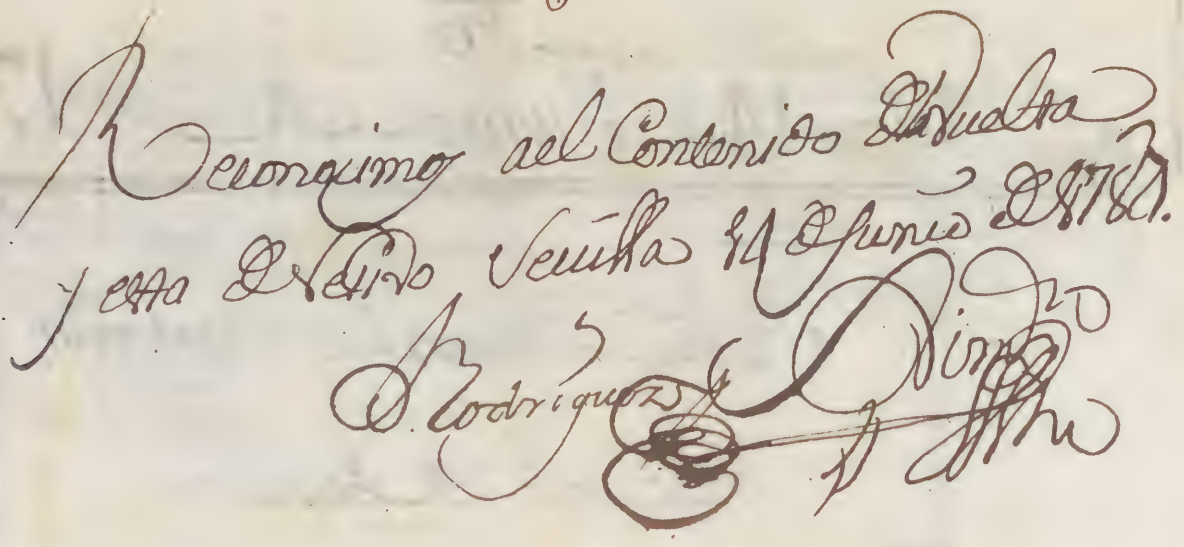 Reconocimos ael Contenido de la Vuelta
y esta de Retiro Sevilla 14 de Junio de 1787.
Rodriguez